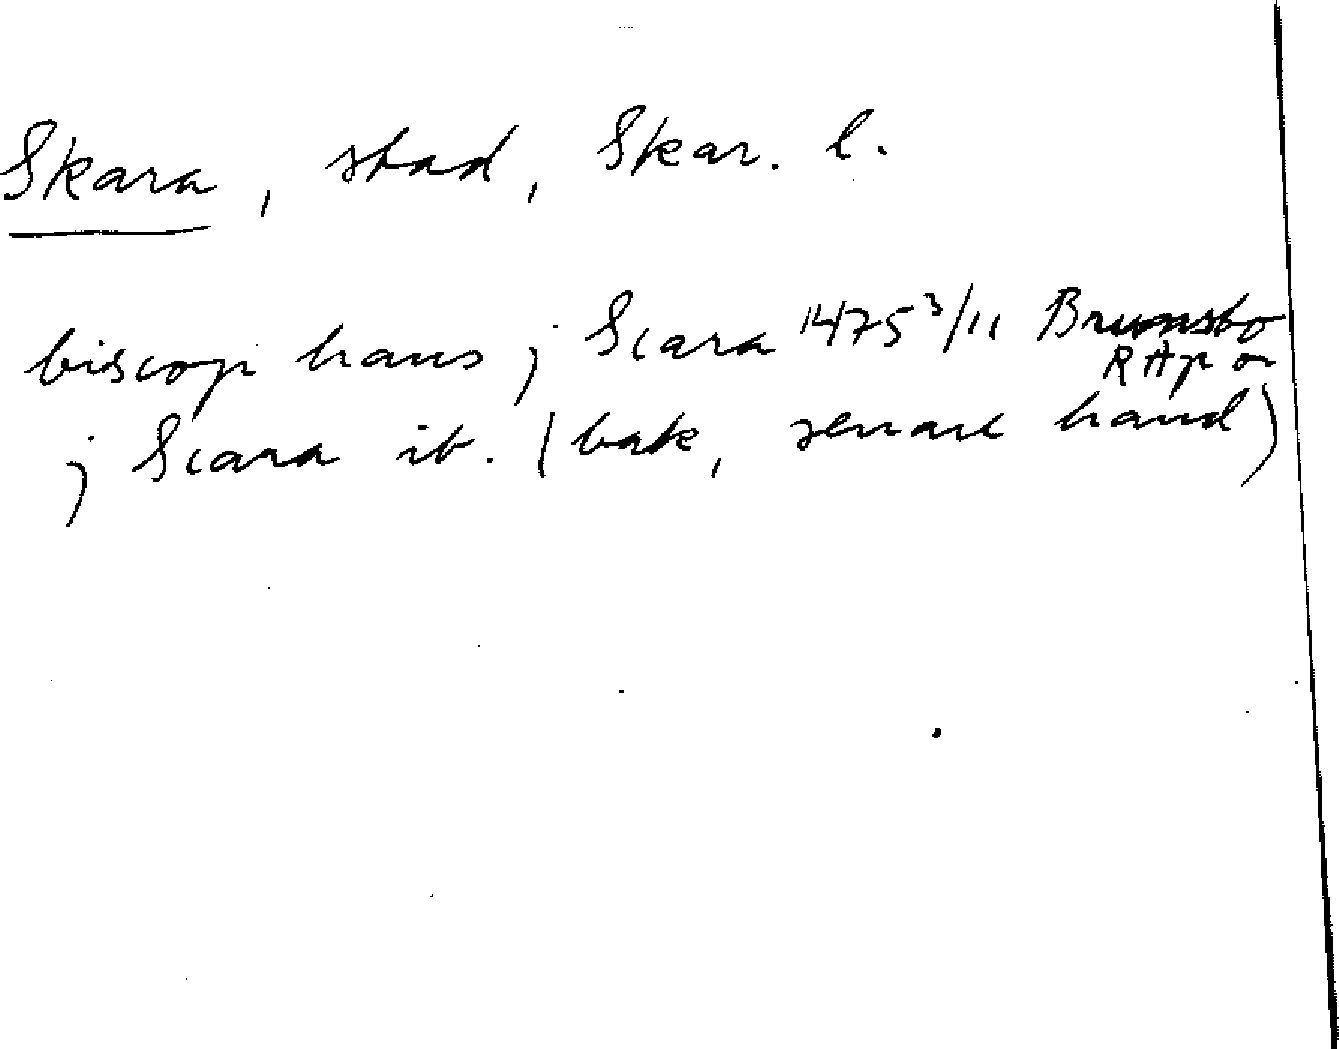 Skara, stad, Skar. l.
biscop hans j Scara 1475 3/11 Brunsbo
RAp or
j Scara ib. (bak, senare hand)